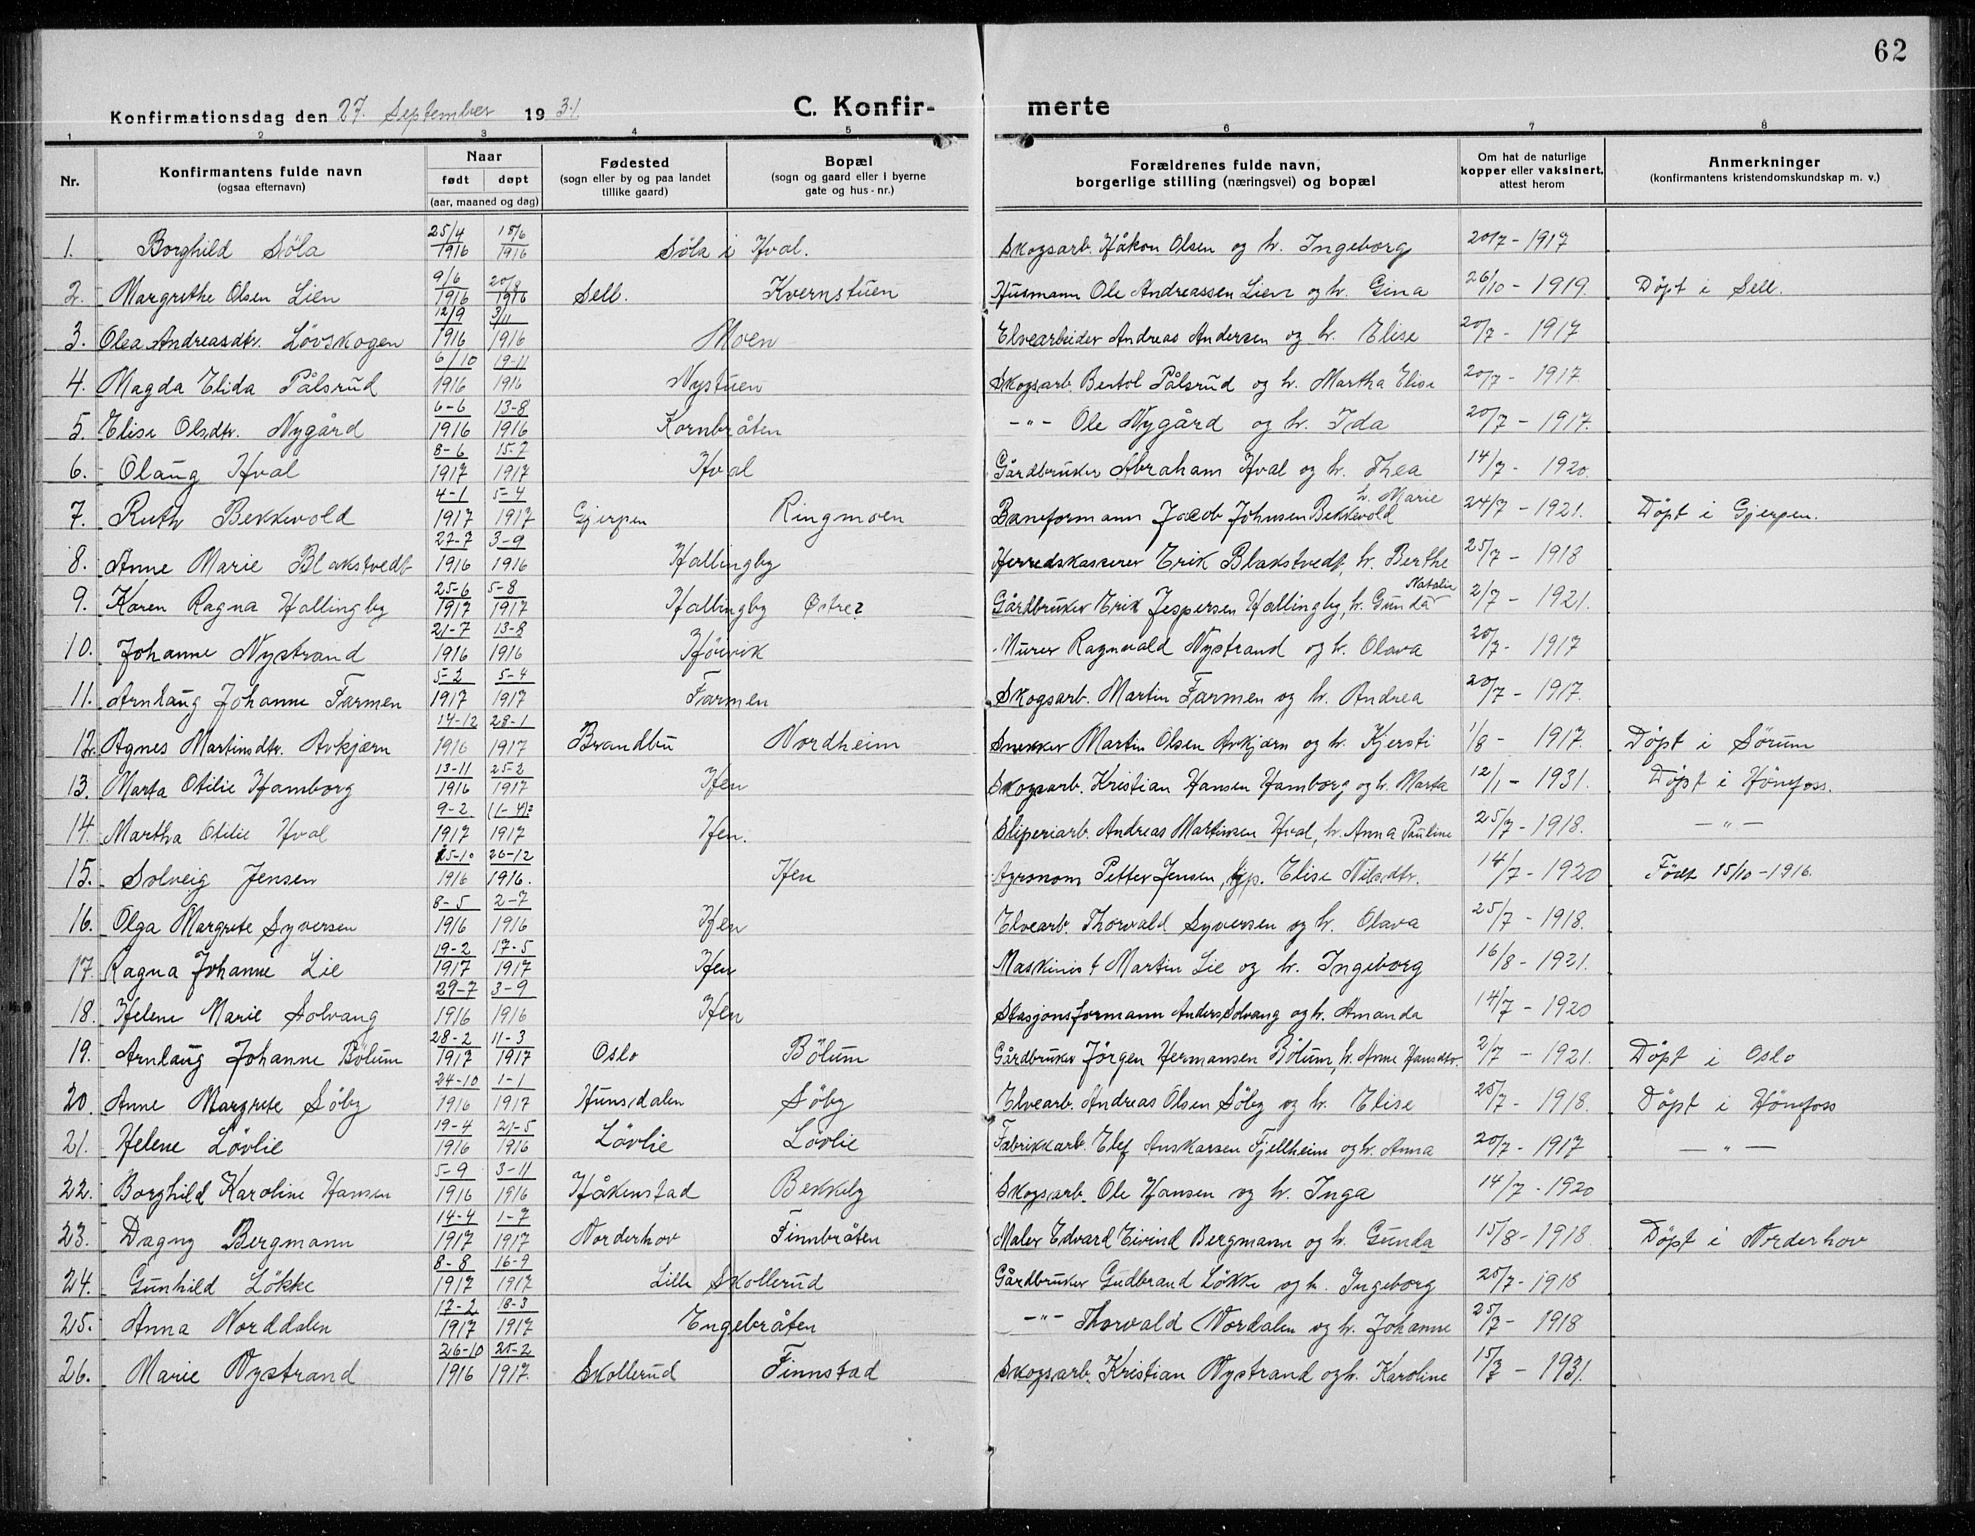 62
Konfirmationsdag den 27. September 1931 C. Konfirmerte
1 2 3 4 5 6 7 8
Nr. Konfirmantens fulde navn (ogsaa efternavn) Naar født døpt (aar, maaned og dag) Fødested (sogn eller by og paa landet tillike gaard) Bopæl (sogn og gaard eller i byerne gate og hus-nr.) Forældrenes fulde navn, borgerlige stilling (næringsvei) og bopæl Om hat de naturlige kopper eller vaksinert, attest herom Anmerkninger (konfirmantens kristendomskundskap m. v.)
1. Borghild Søla 25/4 1916 15/6 1916 Søla i Hval. Skogsarb. Håkon Olsen og h. Ingeborg 20/7 - 1917
2. Margrethe Olsen Lien 9/6 1916 20/8 1916 Sell. Kvernstuen Husmann Ole Andreassen Lien og h. Gina 26/10 - 1919. Döpt i Sell.
3. Olea Andreasdtr. Løvskogen 12/9 1916 3/11 1916 Moen Elvearbeider Andreas Andersen og h. Elise 20/7 - 1917
4. Magda Elida Pålsrud 6/10 1916 19-11 1916 Nystuen Skogsarb. Bertol Pålsrud og h. Martha Elise 20/7 - 1917
5. Elise Olsdtr. Nygård 6-6 1916 13-8 1916 Kornbråten -"- Ole Nygård og h. Ida 20/7 - 1917.
6. Olaug Hval 8-6 1917 15-7 1917 Hval Gårdbruker Abraham Hval og h. Thea 14/7 - 1920.
7. Ruth Bekkevold 4-1 1917 5-4 1917 Gjerpen Ringmoen Baneformann Jacob Johnsen Bekkevold h. Marie 24/7 - 1921. Döpt i Gjerpen.
8. Anne Marie Blakstvedt 27-7 1916 3-9 1916 Hallingby Herredskasserer Erik Blakstvedt, h. Berthe 25/7 - 1918
9. Karen Ragna Hallingby 25-6 1917 5-8 1917 Hallingby Østre? Gårdbruker Erik Jespersen Hallingby, h. Gunda Natalia 2/7 - 1921.
10. Johanne Nystrand 21-7 1916 13-8 1916 Høivik Murer Ragnvald Nystrand og h. Olava 20/7 - 1917
11. Arnlaug Johanne Farmen 5-2 1917 5-4 1917 Farmen Skogsarb. Martin Farmen og h. Andrea 20/7 - 1917.
12. Agnes Martinsdtr. Avkjærn 14-12 1916 28-1 1917 Brandbu Nordheim Snekker Martin Olsen Avkjærn og h. Kjersti 1/8 - 1917. Döpt i Sørum
13. Marta Otilie Hamborg 13-11 1916 25-2 1917 Hen Skogsarb. Kristian Hansen Hamborg og h. Marta 12/1 - 1931. Döpt i Hönefoss.
14. Martha Otilie Hval 9-2 1917 (1-4)? 1917 Hen. Sliperiarb. Andreas Martinsen Hval, h. Anna Pauline 25/7 - 1918. -"-
15. Solveig Jensen 15-10 1916 26-12 1916. Hen Agronom Petter Jensen, Elise Nilsdtr. 14/7 - 1920 Född 15/10 - 1916.
16. Olga Margrete Syversen 8-5 1916 2-7 1916 Hen Elvearb. Thorvald Syversen og h. Olava 25/7 - 1918.
17. Ragna Johanne Lie 19-2 1917 17-5 1917 Hen Maskinist Martin Lie og h. Ingeborg 16/8 - 1921.
18. Helene Marie Solvang 29-7 1916 3-9 1916 Hen Stasjonsformann Anders Solvang og h. Amanda 14/7 - 1920
19. Arnlaug Johanne Bölum 28-2 1917 11-3 1917 Oslo Bölum Gårdbruker Jörgen Hermansen Bölum, h. Anne Hansdtr. 2/7 - 1921. Döpt i Oslo
20. Anne Margrete Söby 24-10 1916 1-1 1917 Hunsdalen Söby Elvearb. Andreas Olsen Söby og h. Elise 25/7 - 1918. Döpt i Hönefoss
21. Helene Lövlie 19-4 1916 21-5 1916 Lövlie Lövlie Fabrikkarb. Elef Anskarsen Fjellheim og h. Anna 20/7 - 1917 -"-
22. Borghild Karoline Hansen 5-9 1916 3-11 1916 Håkenstad Bekkeby Skogsarb. Ole Hansen og h. Inga 14/7 - 1920
23. Dagny Bergmann 14-4 1917 1-7 1917 Norderhov Finnbråten Maler Edvard Eivind Bergmann og h. Gunda 15/8 - 1918 Döpt i Norderhov
24. Gunhild Løkke 8-8 1917 16-9 1917 Lille Skollerud Gårdbruker Gudbrand Løkke og h. Ingeborg 25/7 - 1918
25. Anna Norddalen 17-2 1917 18-3 1917 Engebråten -"- Thorvald Nordalen og h. Johanne 25/7 - 1918
26. Marie Nystrand 26-10 1916 25-2 1917. Skollerud Finnstad Skogsarb. Kristian Nystrand og h. Karoline 15/7 - 1931.